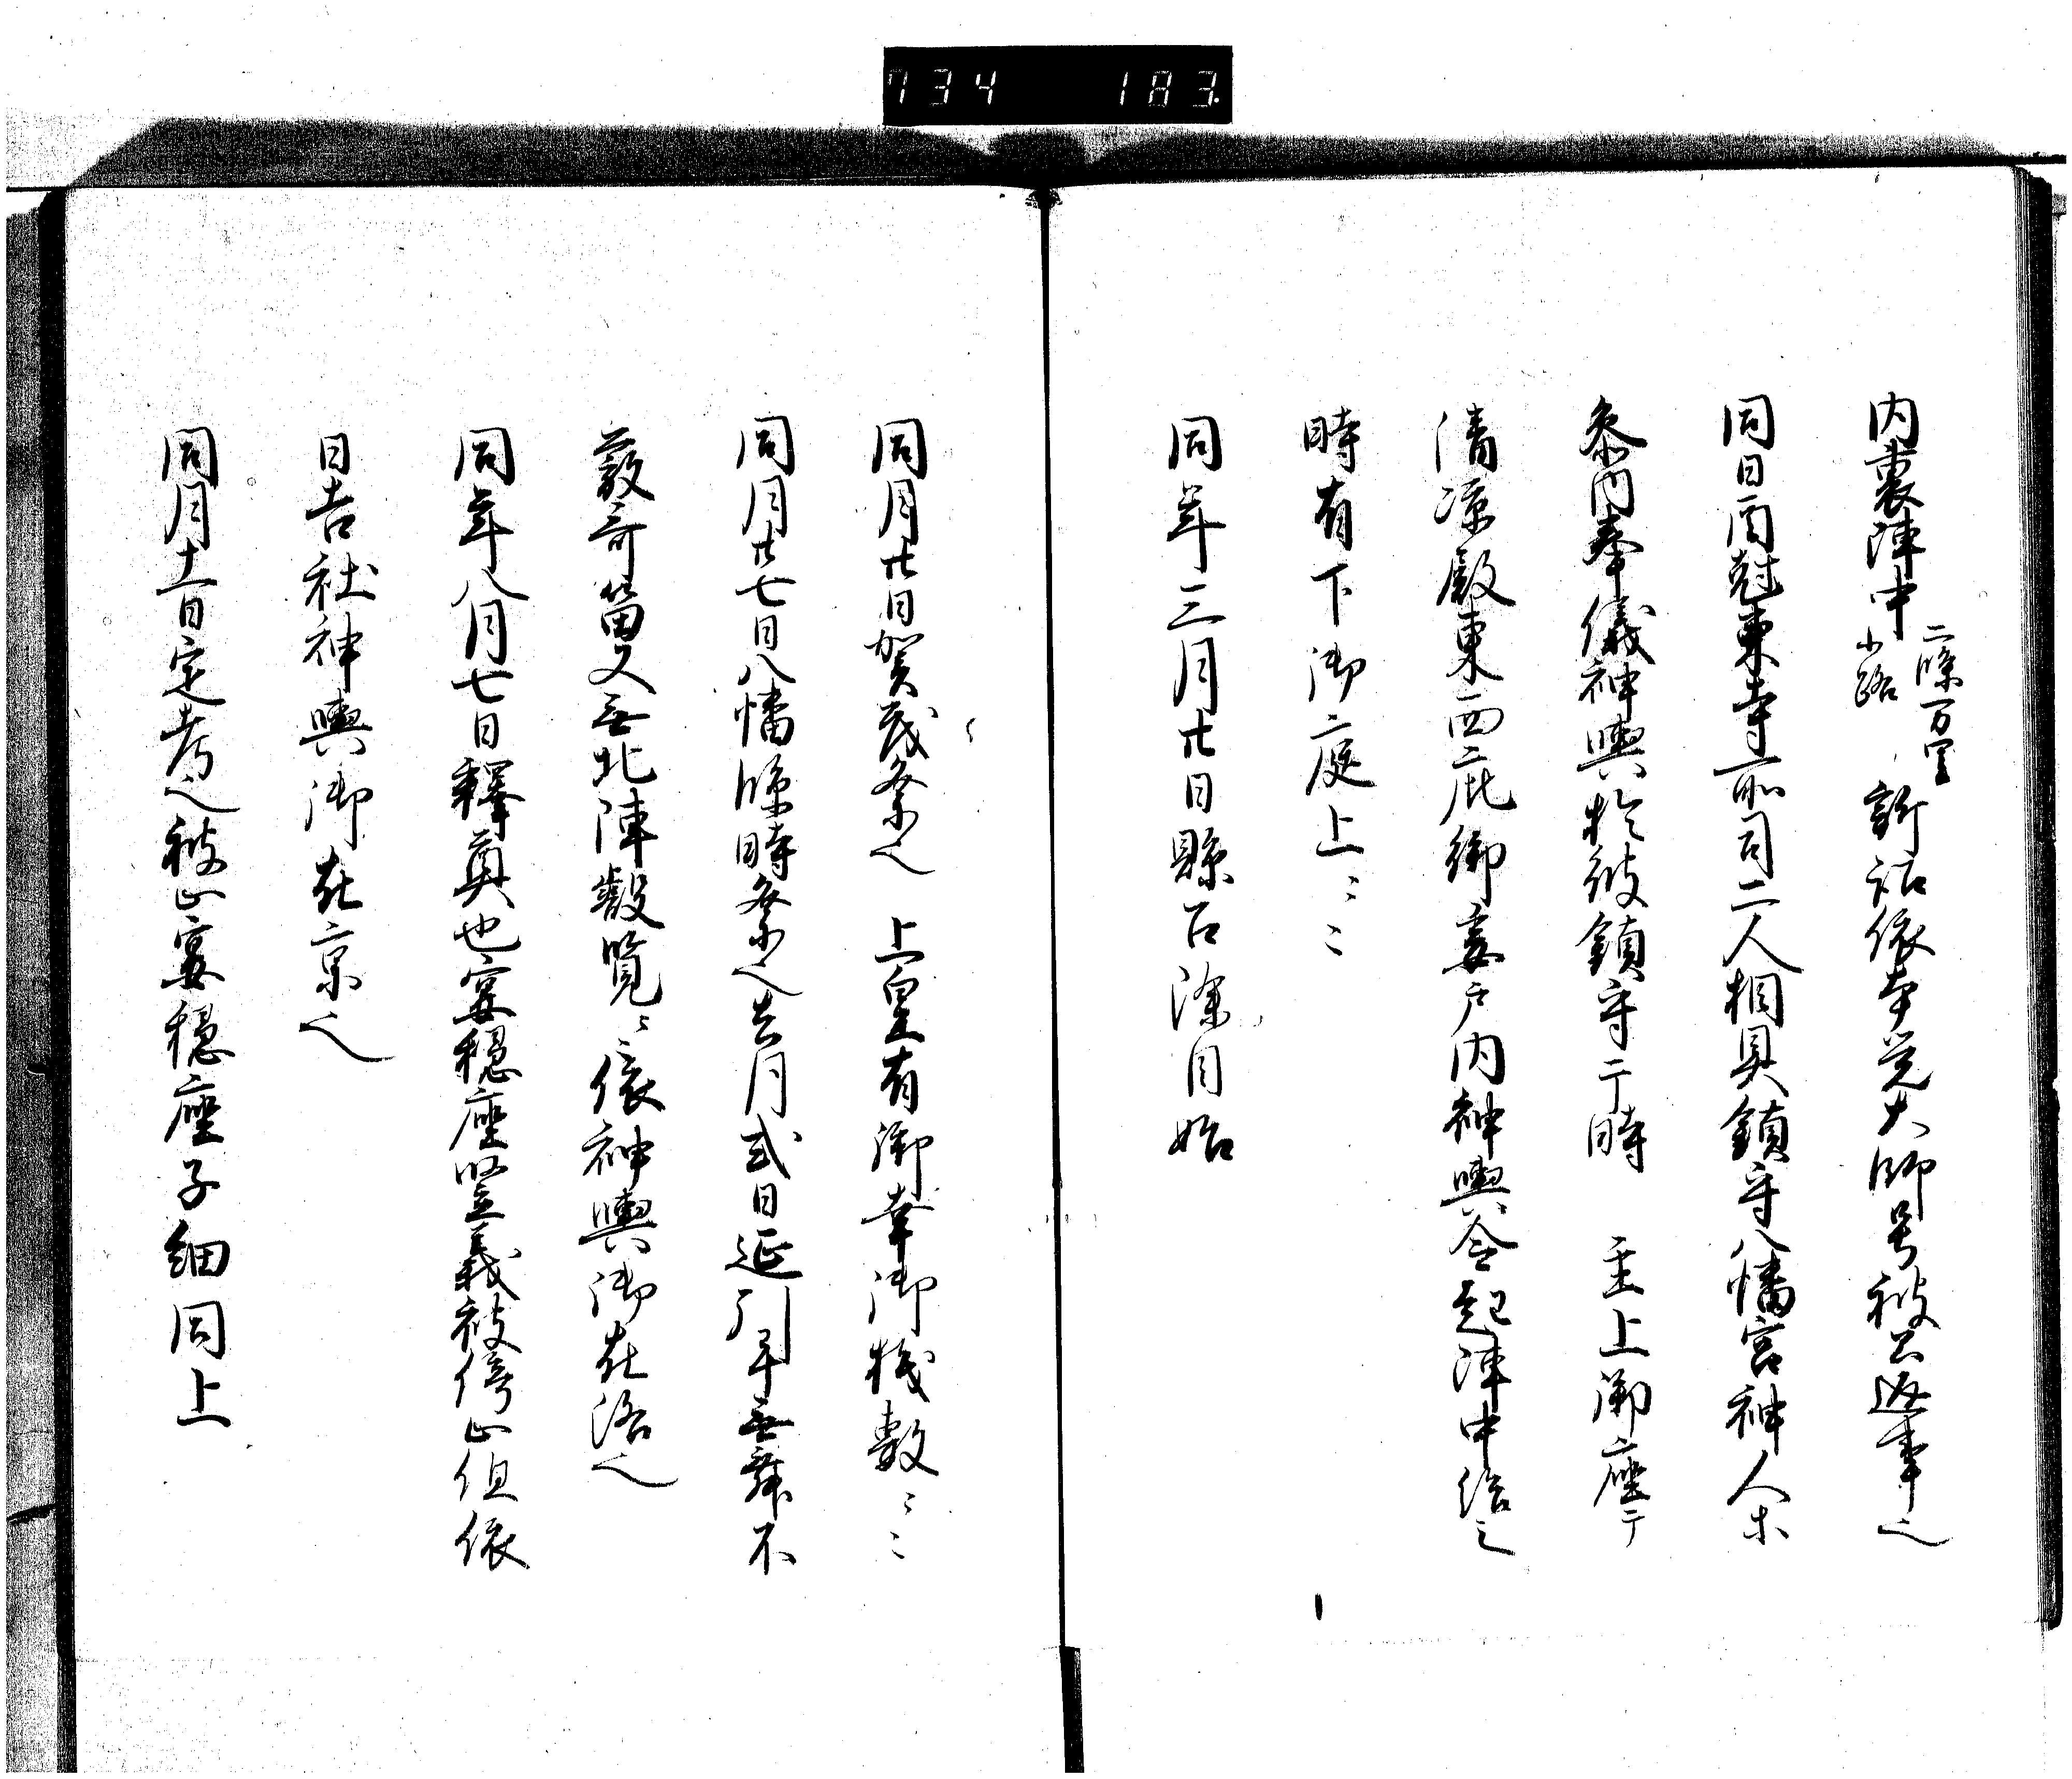 734 183.
内裏陣中二條万里小路訴詔依本覚大師号被召返事也
同日酉尅東寺所司二人相具鎮守八幡宮神人木
参内奉儀神輿於彼鎮守于時 主上御座于
清凉殿東西庇御妻戸内神輿令起陣中給之
時有下御庭上云々
同年三月廿日縣召除目始
同月廿日賀茂祭也 上皇有御幸御棧敷云々
同月廿七日八幡臨時祭也去月式日延引早無舞不
發哥笛又無北陣叡覧云々依神輿御在洛也
同年八月七日釋奠也宴穏座竪義被停止但依
日吉社神輿御在京也
同月十一日定考也被止宴穏座子細同上